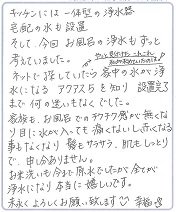 キッチンには一体型の浄水器
宅配の水も設置
そして、今回お風呂の浄水もずっと
考えていました。
ネットで探していたら家中の水が浄
水になるアクアス5を知り設置完了
まで何の迷いもなくでした。
家族も、お風呂でのチクチク感が無くな
り目に水が入っても痛くないし赤くなる
事もなくなり髪もサラサラ、肌もしっとり
で、申し分ありません。
お米洗いも今まで原水でしたが全てが
浄水になり本当に嬉しいです。
末永くよろしくお願い致します 幸福